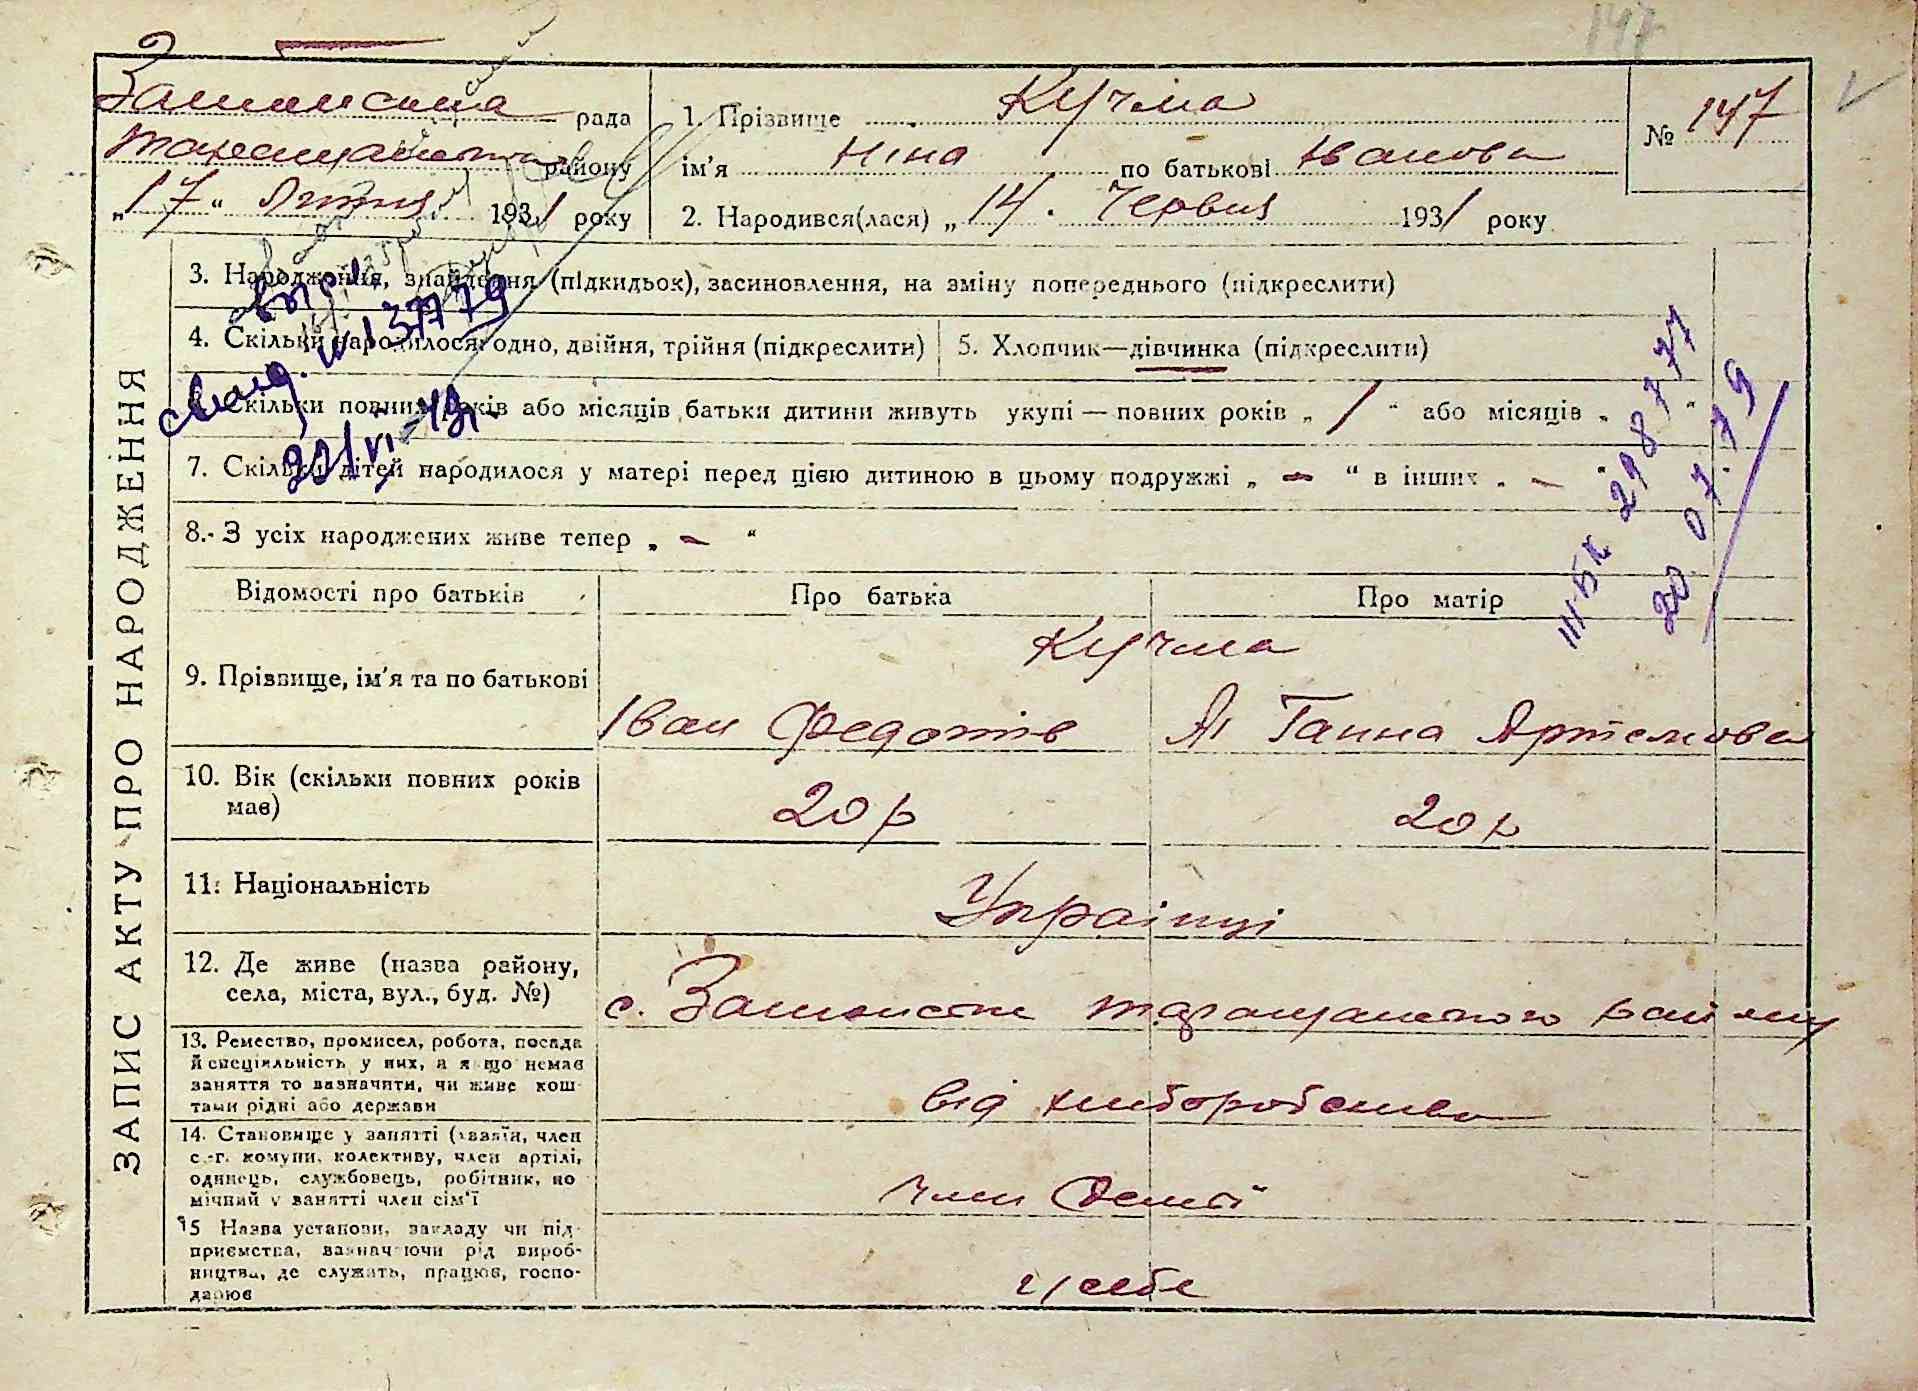 147
рада
району
„17“ Липня 1931 року
1. Прізвище Кучма
ім'я Ніна по батькові Іванова
2. Народився(лася) „14. Червня 1931 року
№ 147
ЗАПИС АКТУ ПРО НАРОДЖЕННЯ
3. Народження, знайдення (підкидьок), засиновлення, на зміну попереднього (підкреслити)
4. Скільки народилося: одно, двійня, трійня (підкреслити)
5. Хлопчик—дівчинка (підкреслити)
Скільки повних років або місяців батьки дитини живуть укупі — повних років „ 1 “ або місяців „ “
7. Скільки дітей народилося у матері перед цією дитиною в цьому подружжі „ – “ в інших „ – “
8. З усіх народжених живе тепер „ – “
20 07.79
Відомості про батьків
Про батька
Про матір
9. Прізвище, ім'я та по батькові
Кучма
Іван Федотів
Ганна Артемова
10. Вік (скільки повних років має)
20 р
20 р
11. Національність
Українці
12. Де живе (назва району,
села, міста, вул., буд. №)
с. Таращанського району
13. Ремество, промисел, робота, посада
й спеціяльність у них, а якщо немає
заняття то зазначити, чи живе кош-
тами рідні або держави
від хліборобства
14. Становище у занятті (хазяїн, член
с.-г. комуни, колективу, член артілі,
одинець, службовець, робітник, по
мічний у занятті член сім'ї
член
15 Назва установи, закладу чи під-
приємства, зазначаючи рід вироб-
ництва, де служать, працює, госпо-
дарює
у себе